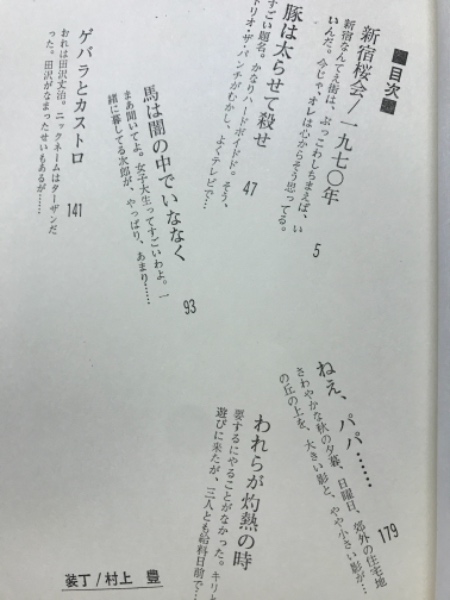 ■目次■
新宿桜会/一九七〇年
新宿なんてえ街は、ぶっこわしちまえば、い
いんだ。今じゃ、オレは心からそう思ってる。
5
豚は太らせて殺せ
すごい題名。かなりハードボイルド。そう、
トリオ・ザ・パンチがむかし、よくテレビで…
47
馬は闇の中でいななく
まあ聞いてよ。女子大生ってすごいわよ。一
緒に暮してる次郎が、やっぱり、あまり……
93
ゲバラとカストロ
おれは田沢文治。ニックネームはターザンだ
った。田沢がなまったせいもあるが……
141
ねえ、パパ……
さわやかな秋の夕暮、日曜日、郊外の住宅地
の丘の上を、大きい影と、やや小さい影が…
179
われらが灼熱の時
要するにやることがなかった。キリ
遊びに来たが、三人とも給料日前で…
装丁/村上 豊